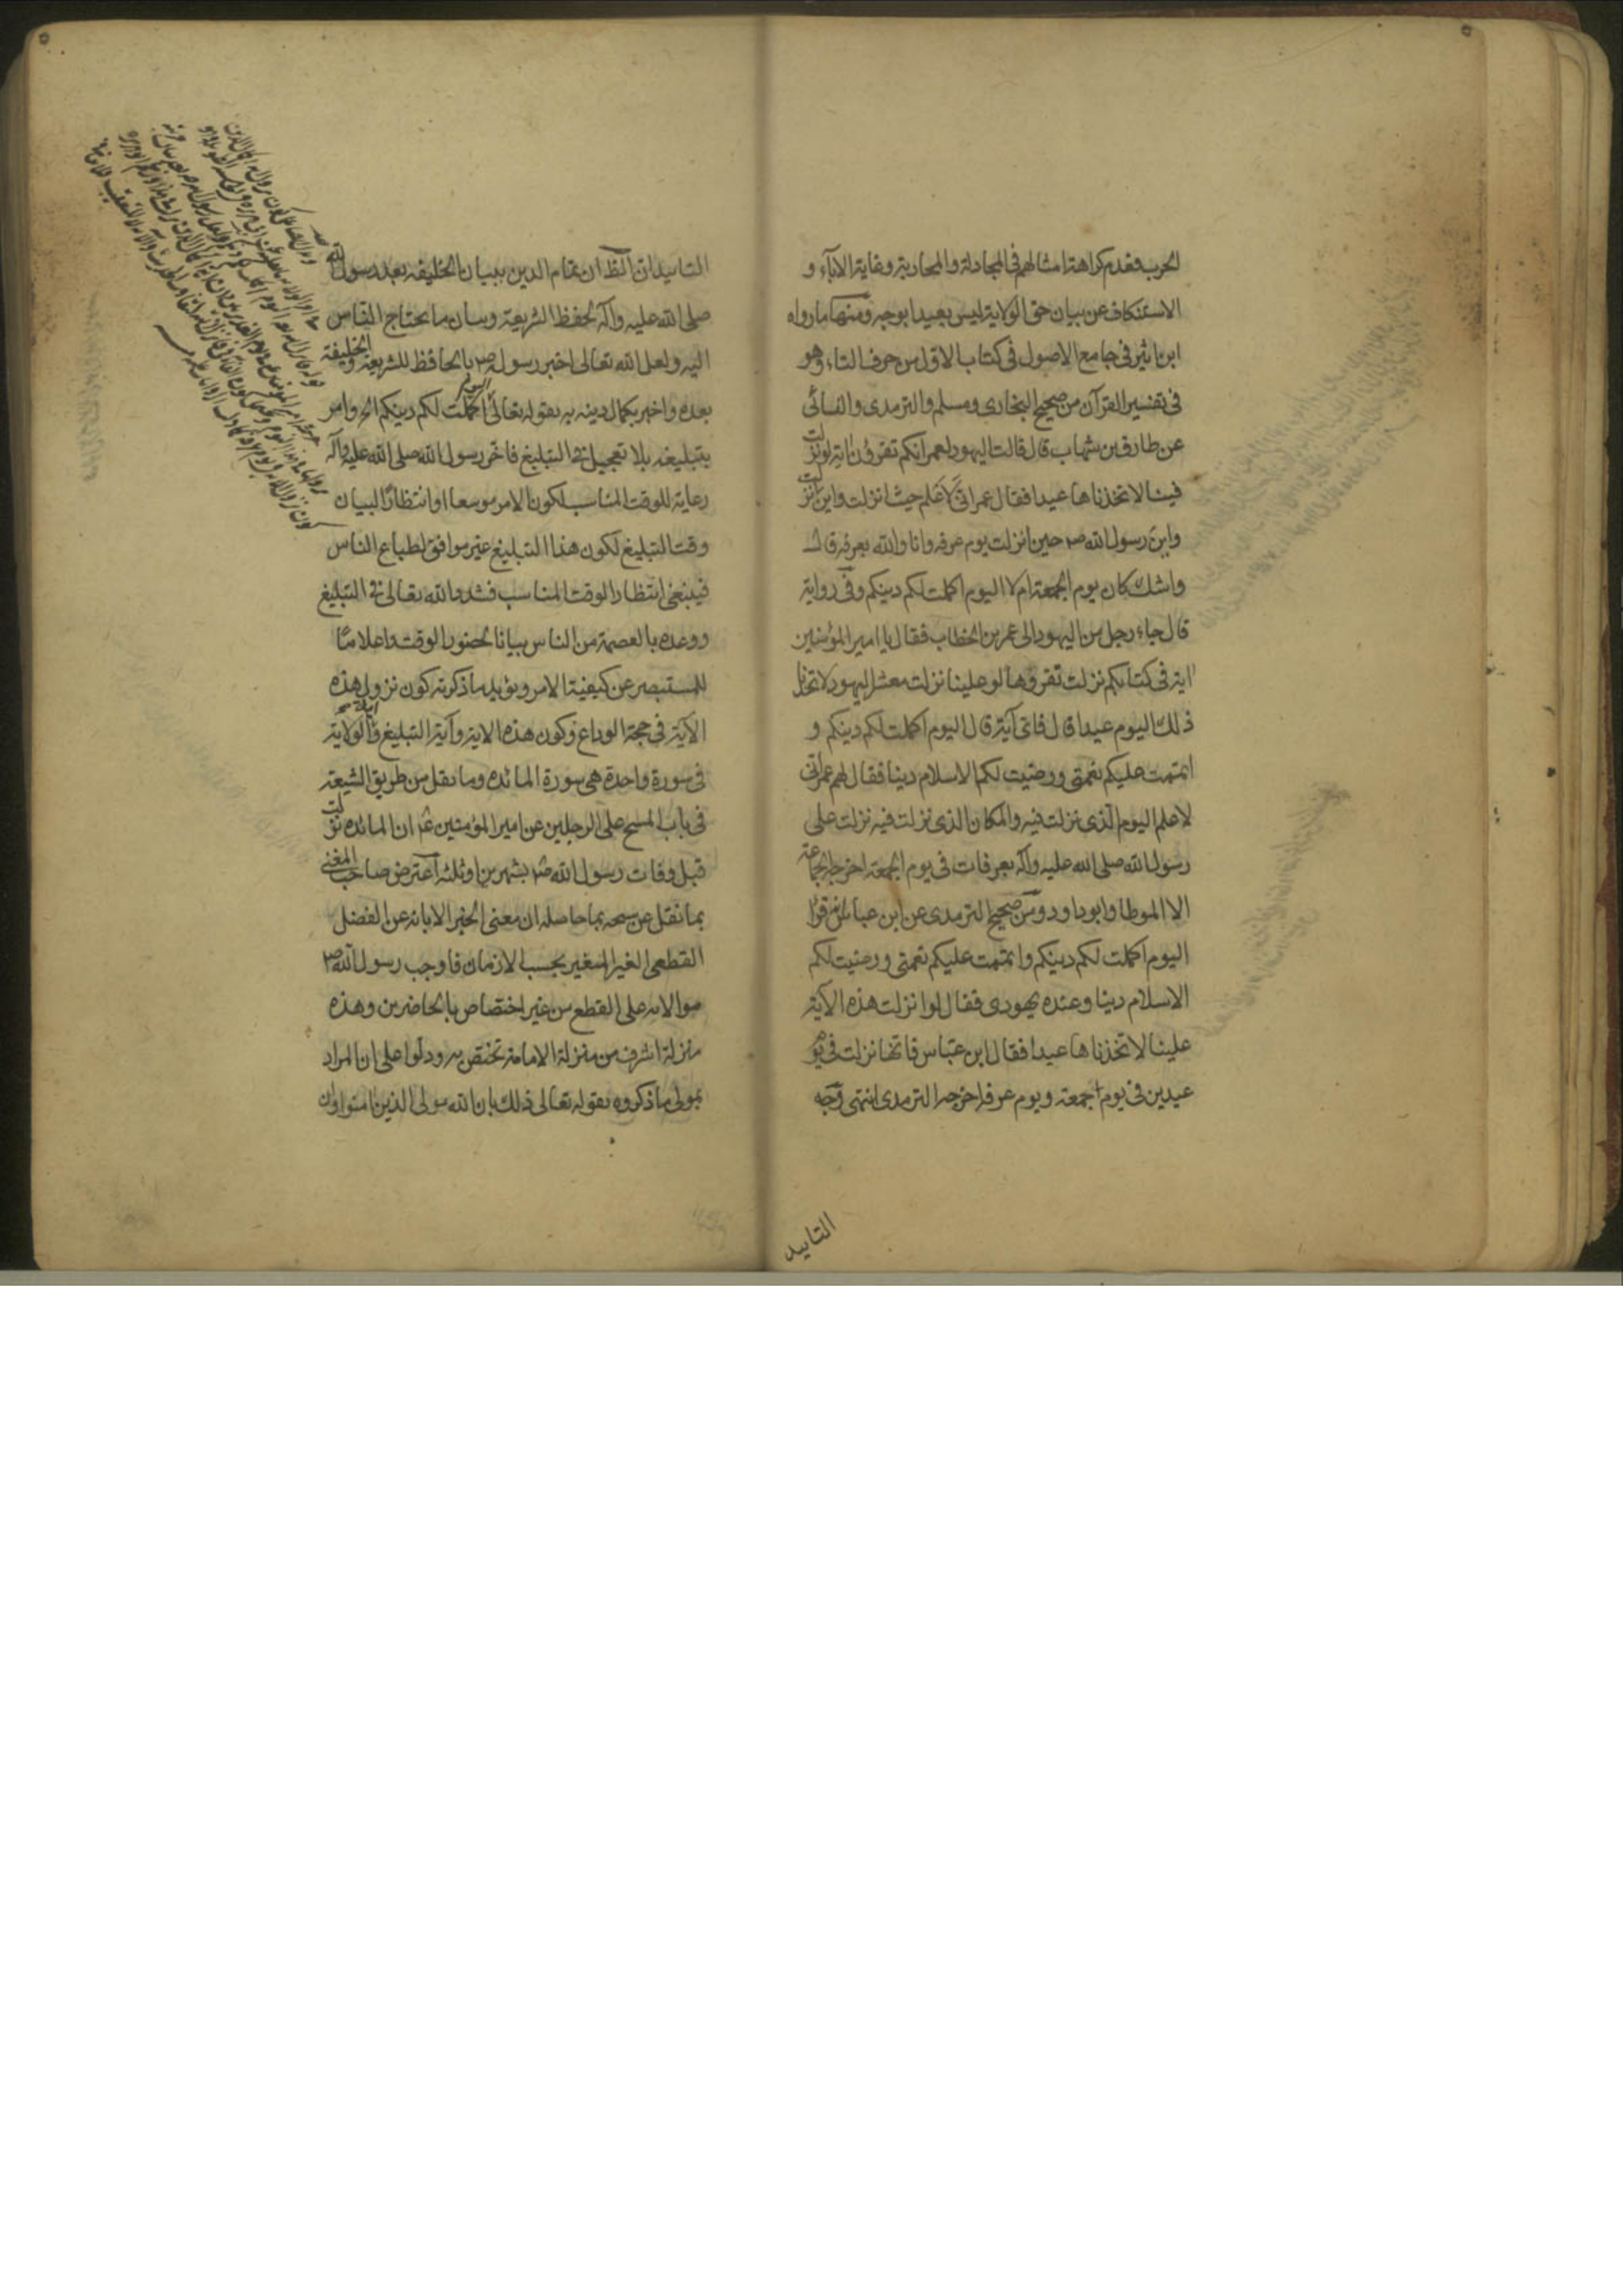 الحرب فعدم كراهة امثالهم فى المجادلة والمحاربة وغاية الاباء و
الاستنكاف عن بيان حق الولاية ليس بعيدا بوجه ومنها ما رواه
ابن اثير فى جامع الاصول فى كتاب الاول من حرف التاء وهو
فى تفسير القرآن من صحيح البخارى ومسلم والترمدى والنسائى
عن طارق بن شهاب قال قالت اليهود لعمر انكم تقرؤن اية لو نزلت
فينا لاتخذناها عيدا فقال عمر انى لاعلم حيث انزلت واين انزلت
واين رسول الله ص حين انزلت يوم عرفه وانا والله بعرفه قال
واشك كان يوم الجمعة ام لا اليوم اكملت لكم دينكم وفى رواية
قال جاء رجل من اليهود الى عمر بن الخطاب فقال يا امير المؤمنين
اية فى كتابكم نزلت تقرؤها لو علينا نزلت معشر اليهود لاتخذنا
ذلك اليوم عيدا قال فاتى آية قال اليوم اكملت لكم دينكم و
اتممت عليكم نعمتى ورضيت لكم الاسلام دينا فقال لهم عمر انى
لاعلم اليوم الذى نزلت فيه والمكان الذى نزلت فيه نزلت على
رسول الله صلى الله عليه وآله بعرفات فى يوم الجمعة اخرجه الجماعة
الا الموطا وابو داود ومن صحيح الترمدى عن ابن عباس قرا
اليوم اكملت لكم دينكم واتممت عليكم نعمتى ورضيت لكم
الاسلام دينا وعنده يهودى فقال لوا نزلت هذه الآية
علينا لاتخذناها عيدا فقال ابن عباس فانها نزلت فى يوم
عيدين فى يوم جمعة ويوم عرفة اخرجه الترمدى انتهى وجه
التاييد
التاييد ان الظ ان تمام الدين ببيان الخليفه بعد رسول الله
صلى الله عليه وآله لحفظ الشريعة وبيان ما يحتاج الناس
اليه ولعل الله تعالى اخبر رسوله ص بالحافظ للشريعة والخليفة
بعده واخبر بكمال دينه به بقوله تعالى اليوم اكملت لكم دينكم الخ وامر
بتبليغه بلا تعجيل فى التبليغ فاخر رسول الله صلى الله عليه وآله
رعاية للوقت المناسب لكون الامر موسعا او انتظارا لبيان
وقت التبليغ لكون هذا التبليغ غير موافق لطباع الناس
فينبغى انتظار الوقت المناسب فشدد الله تعالى فى التبليغ
ووعده بالعصمة من الناس بيانا لحضور الوقت واعلاما
للمستبصر عن كيفية الامر ويؤيد ما ذكرته كون نزول هذه
الآية فى حجة الوداع وكون هذه الاية وآية التبليغ وآية الولاية
فى سورة واحدة هى سورة المائده وما نقل من طريق الشيعة
فى باب المسح على الرجلين عن امير المؤمنين ع ان المائده نزلت
قبل وفات رسول الله ص بشهرين او ثلثه اعترض صاحب المغنى
بما نقل عن شيخه بما حاصله ان معنى الخبر الابانه عن الفضل
القطعى الغير المتغير بحسب الازمان فاوجب رسول الله ص
موالاته على القطع من غير اختصاص بالحاضرين وهذه
منزلة اشرف من منزلة الامامة تختص به ودلوا على ان المراد
بمولى ما ذكروه بقوله تعالى ذلك بان الله مولى الذين امنوا وان